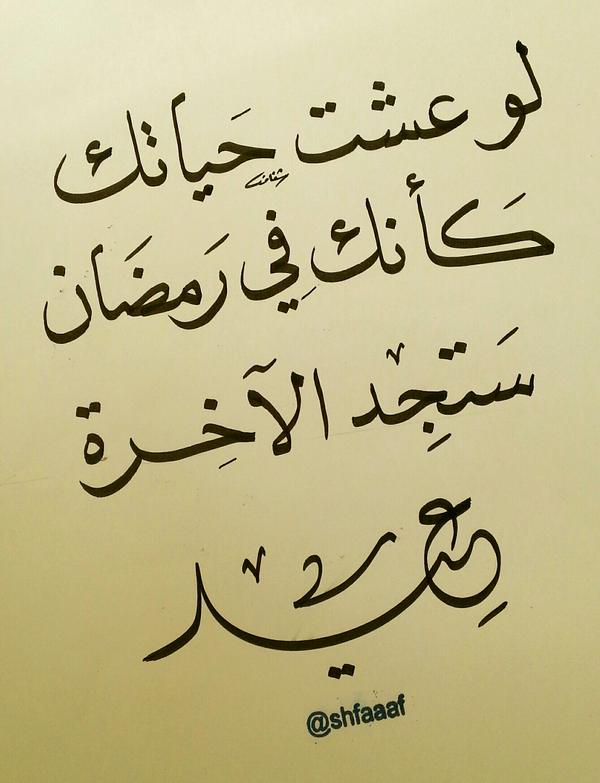 لو عشت حَياتك
كَأنك فِي رَمضَان
سَتجِدْ الآخِرة
عيد
@shfaaaf